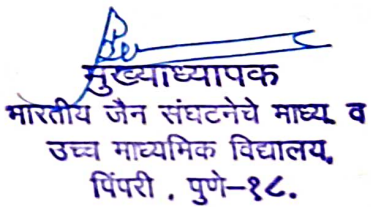 मुख्याध्यापक
भारतीय जैन संघटनेचे माध्य. व
उच्च माध्यमिक विद्यालय,
पिंपरी . पुणे-१८.